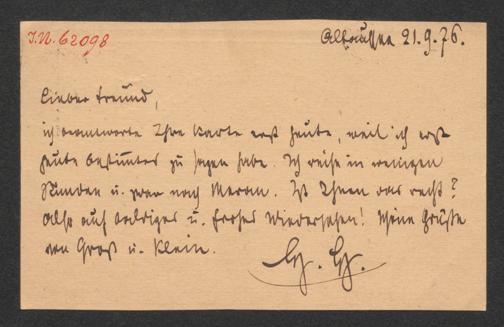 I.N. 62098
Altaussee 21.9.76.
Lieber Freund,
ich beantworte Ihre Karte erst heute, weil ich erst
heute bestimmtes zu sagen habe. Ich reise in wenigen
Stunden u. zwar nach Meran. Ist Ihnen das recht?
Also auf baldiges u. frohes Wiedersehen! Meine Grüße
an Groß u. Klein.